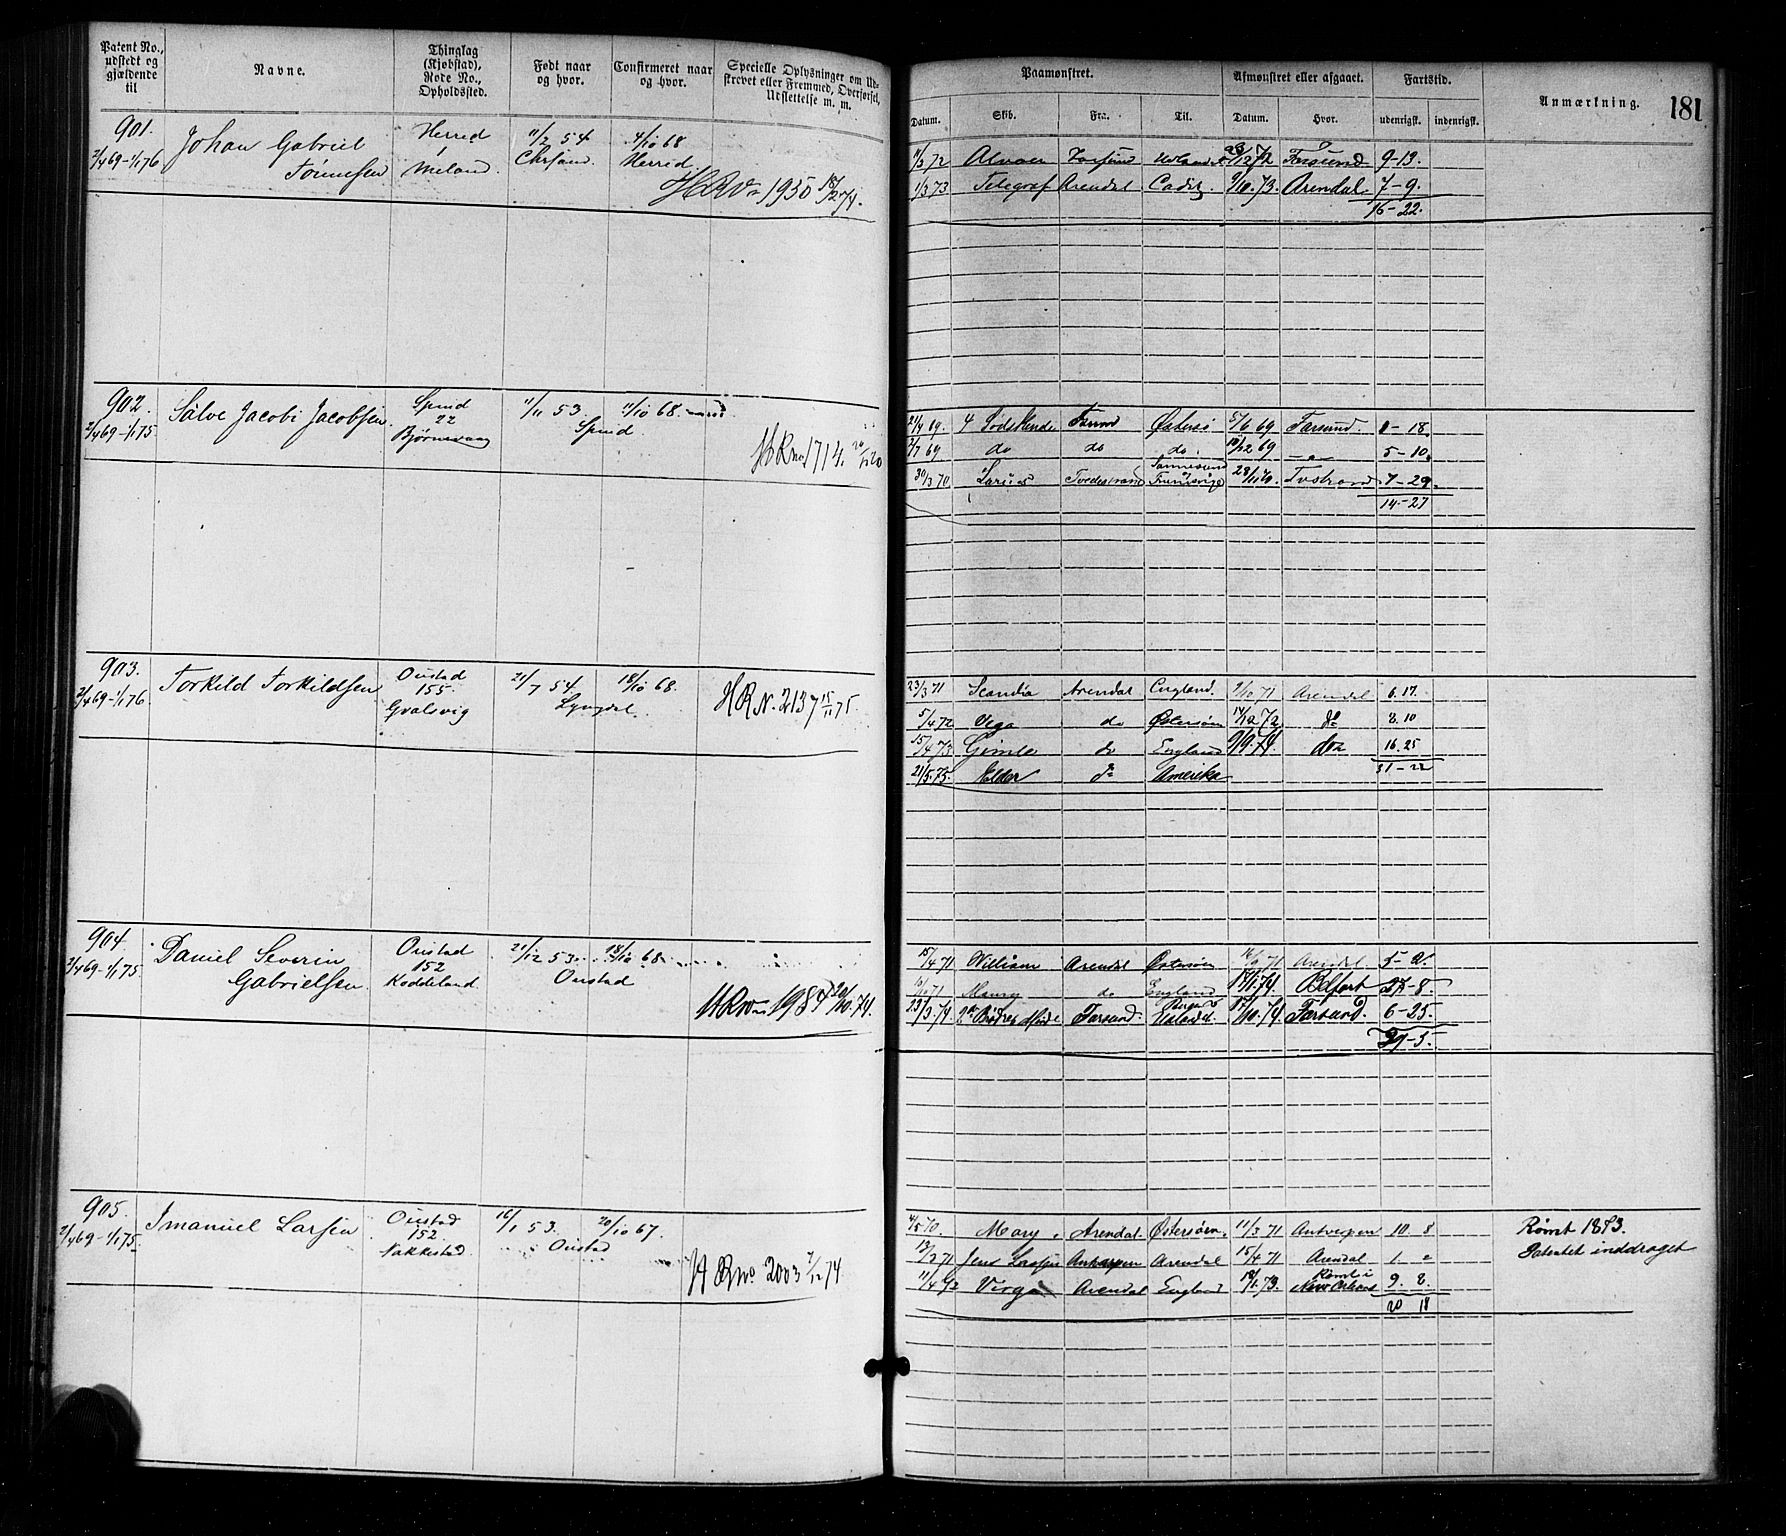 Patent No., udstedt og gjældende til
Navne.
Thinglag (Kjøbstad), Rode No., Opholdssted.
Født naar og hvor.
Confirmeret naar og hvor.
Specielle Oplysninger om Udskrevet eller Fremmed, Overførsel, Udslettelse m. m.
Paamønstret.
Afmønstret eller afgaaet.
Fartstid.
Anmærkning.
181
Datum.
Skib.
Fra.
Til.
Datum.
Hvor.
udenrigsk.
indenrigsk.
901.
2/4 69-1/1 76
Johan Gabriel
Tønnesen
Herred
1
Meland.
11/2 54
Chrsand.
4/10 68
Herred
HRNo 1950 18/2 74.
72 Farsund 72 Farsund 9-13.
1/3 73 Telegraf Arendal Cadiz. 9/10.73. Arendal 7-9.
16-22.
902.
2/4 69-1/1 75.
Salve Jacobi Jacobsen
Spind
22
Bjørnevaag
11/11 53.
11/10 68.
Spind
HRNo 1714.
21/4 69. Østersø 5/6 69 Farsund. 18.
2/7 69 do do do. 10/12 69 5-10.
30/3 70 Tvedestrand Tvstrand 7-29.
14-27
903.
2/4 69-1/1 76
Torkild Torkildsen
Oustad
155.
Gvalsvig
21/7 54.
18/10 68.
Lyngdal.
HRN. 2137 15/11 75.
23/3 71 Scandia Arendal England. 9/10 71 Arendal 6. 17.
5/4 72 Vega do Østersøen 14/12 72 do 8. 10
15/4 73 Gimle do England 9/9.74. do 16. 25
31-22
21/5.75. Elder do Amerika
904.
2/4 69-1/1 75.
Daniel Severin
Gabrielsen
Oustad
152
Koddeland
21/12 53.
18/10 68.
Oustad
HRNo 1984 20/10.74.
15/4 71 William Arendal Østersøen 71 Arendal 5-
71 Maury do England 74. Belfast 27-8.
23/3 74 Farsund. 10.74 Farsund. 6-25.
39-5.
905.
2/4 69-1/1 75.
Imanuel Larsen
Oustad
152.
Nakkestad
16/1 53.
20/10 67.
Oustad
HRNo 2003 7/12 74
4/5 70. Mary. Arendal. Østersøen. 11/3 71 Antwerpen 10. 8
71 Jens Lassen Antwerpen Arendal 15/4 71 Arendal 1 "
11/4 72 Virgo Arendal England 18/1.73. Rømt i
New Orleans 9. 8.
20 18
Rømt 1873.
Patentet inddraget